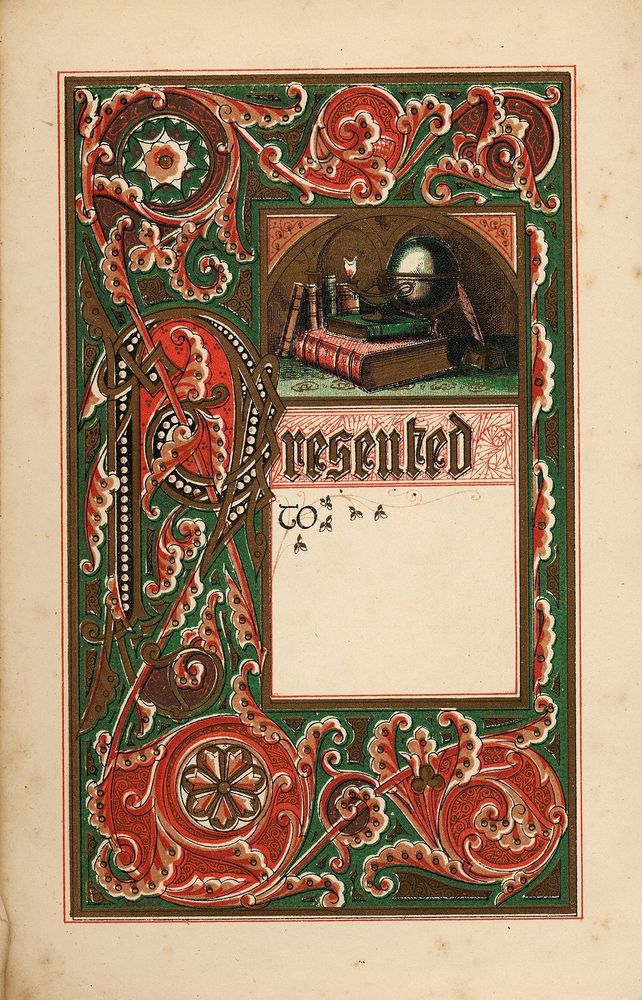 Presented
to